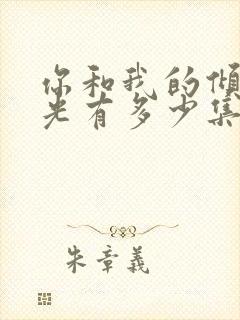 你和我的倾
光有多少集
朱章義